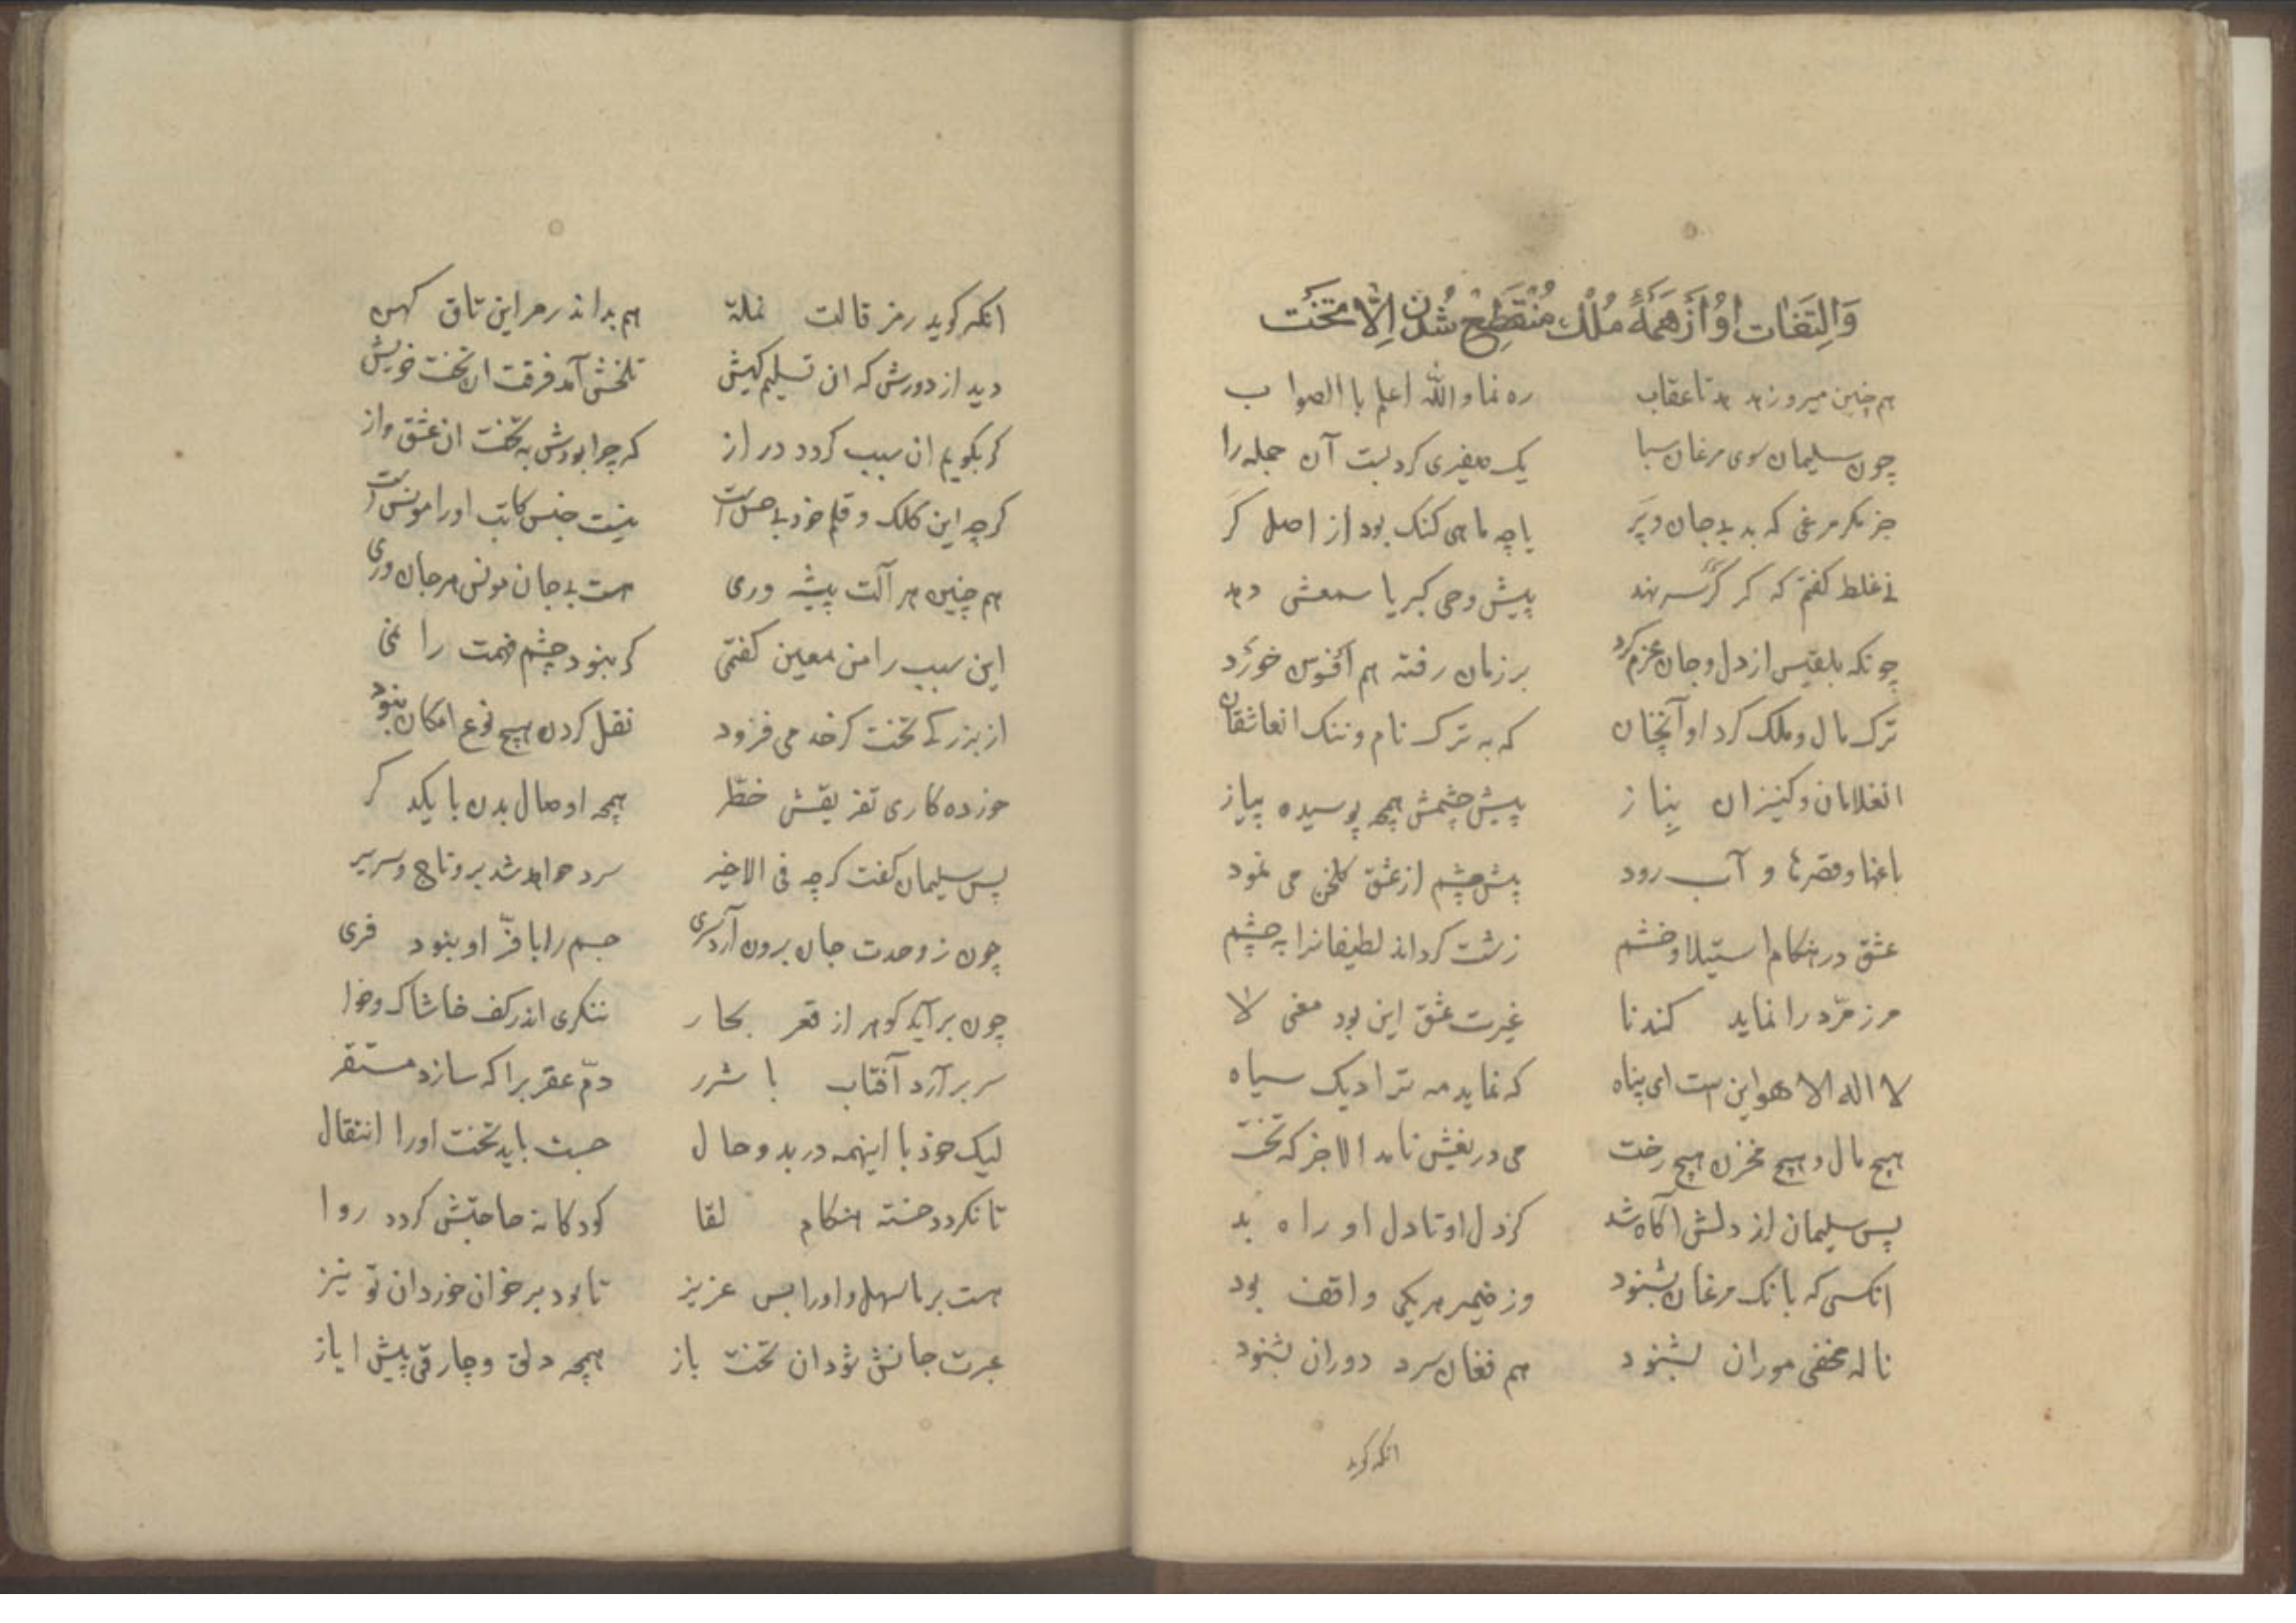 وَالِتفَات اوُ اَز هَمَهٔ مُلْك مُنْقَطِع شُدن اِلّا متخَت
هم چنین میرو زهد هد تا عقاب ره نما والله اعلم باالصواب
چون سلیمان سوی مرغان سبا یک صفیری کرد بست آن جمله را
جز مکر مرغی که بد بی جان و پَر یا چه ماهی کنک بود از اصل کَر
نی غلط کفتم که کر کر سر نهد پیش وحی کبریا سمعش دهد
چونکه بلقیس از دل و جان عزم کرد بر زمان رفته هم افسوس خورد
ترک مال و ملک کرد او آنچنان که به ترک نام و ننک انعاشقان
انغلامان و کنیزان بناز پیش چشمش همچه پوسیده پیاز
باغها و قصرها و آب رود پیش چشم از عشق کلخن می نمود
عشق در هنکام استیلا و خشم زشت کرداند لطیفانرا به چشم
مر زمرّد را نماید کندنا غیرت عشق این بود معنی لا
لا اله الا هو این است ای پناه که نماید مه ترا دیک سیاه
هیچ مال و هیچ مخزن هیچ رخت می دریغش نامد الا جز که تخت
پس سلیمان از دلش آکاه شد کز دل او تا دل او راه بد
انکسی که بانک مرغان بشنود وز ضمیر هر یکی واقف بود
ناله مخفی موران بشنود هم فغان سرد دوران بشنود
انکه کوید
انکه کوید رمز قالت نملة هم بداند رمز این تاق کهن
دید از دورش که ان تسلیم کیش تلخش آمد فرقت ان تخت خویش
کر بکویم ان سبب کردد دراز که چرا بودش به تخت ان عشق و از
کرچه این کلک و قلم خود بی حس است نیست جنس کاتب اورا مونس است
هم چنین هر آلت پیشه وری هست بی جان مونس هر جان وری
این سبب را من معین کفتمی کر نبود چشم فهمت را نمی
از بزرکی تخت کز حد می فزود نقل کردن هیچ نوع امکان نبود
خورده کاری تفریقش خطر همچه اوصال بدن با یکدکر
پس سلیمان کفت کرچه فی الاخیر سرد خواهد شد برو تاج و سریر
چون ز وحدت جان برون آرد سری جسم را با فرّ او نبود فری
چون برآید کوهر از قعر بحار ننکری اندر کف خاشاک و خوا
سر برآرد آفتاب با شرر دمّ عقربرا که سازد مستقر
لیک خود با اینهمه در بد و حال جست باید تخت اورا انتقال
تا نکردد خسته هنکام لقا کودکانه حاجتش کردد روا
هست بر ما سهل و اورا بس عزیز تا بود بر خوان خوردان تو نیز
عبرت جانش شود ان تخت باز همچه دلق و چارقی پیش ایاز